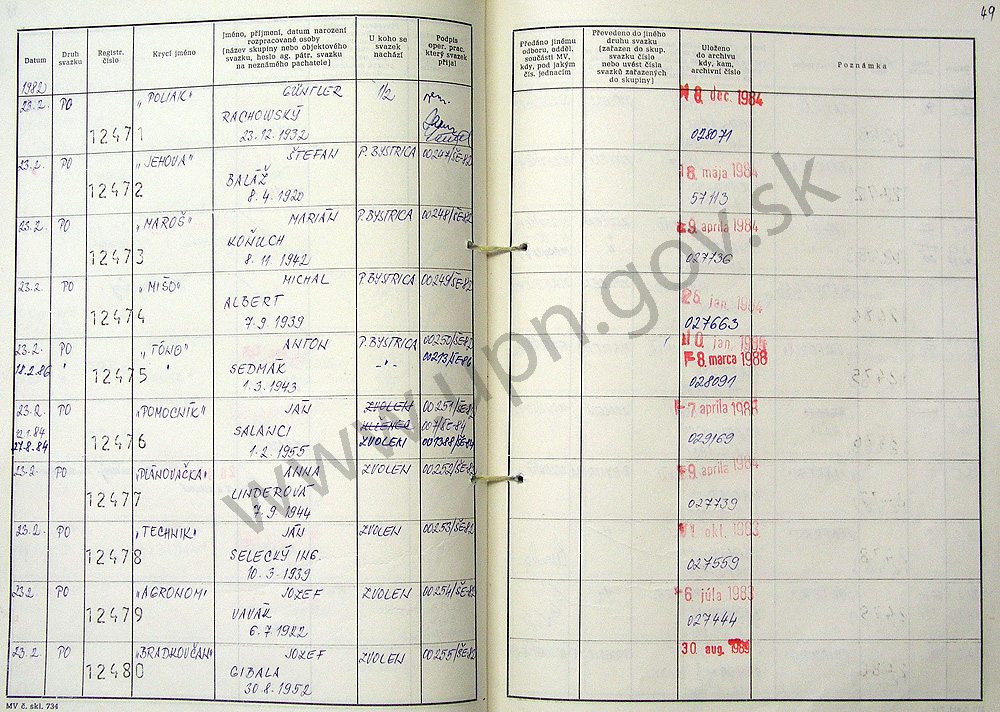 49
Datum
Druh svazku
Registr. číslo
Krycí jméno
Jméno, příjmení, datum narození rozpracované osoby
[název skupiny nebo objektového svazku, heslo ag. pátr. svazku na neznámého pachatele]
U koho se svazek nachází
Podpis oper. prac. který svazek přijal
Předáno jinému odboru, odděl. součásti MV, kdy, pod jakým čís. jednacím
Převedeno do jiného druhu svazku [zařazen do skup. svazku číslo nebo uvést čísla svazků zařazených do skupiny]
Uloženo do archivu kdy, kam, archivní číslo
Poznámka
1982
23.2. PO 12471 „POLIAK“ GÜNTLER 1/2
RACHOWSKÝ
23.12.1932
8. dec. 1984
028071
23.2. PO 12472 „JEHOVA“ ŠTEFAN P. BYSTRICA 00247/ŠE-82
BALÁŽ
8.4.1920
18. mája 1984
57113
23.2. PO 12473 „MAROŠ“ MARIÁN P. BYSTRICA 00248/ŠE-82
KOŇUCH
8.11.1942
9. apríla 1984
027736
23.2. PO 12474 „MIŠO“ MICHAL P. BYSTRICA 00249/ŠE-82
ALBERT
7.9.1939
jan. 1984
027663
23.2. PO 12475 „TÓNO“ ANTON P. BYSTRICA 00250/ŠE-82
18.2.86 " -"- 00213/ŠE-86
SEDMÁK
1.3.1943
jan.
8. marca 1988
028091
23.2. PO 12476 „POMOCNÍK“ JÁN ZVOLEN 00251/ŠE-82
12.1.84
27.8.84 ZVOLEN 001388/ŠE-84
SALANCI
1.2.1955
7. apríla 1988
029169
23.2. PO 12477 „PLÁNOVAČKA“ ANNA ZVOLEN 00252/ŠE-82
LINDEROVÁ
7.9.1944
9. apríla 1984
027739
23.2. PO 12478 „TECHNIK“ JÁN ZVOLEN 00253/ŠE-82
SELECKÝ ING.
10.3.1939
okt. 1983
027559
23.2 PO 12479 „AGRONOM“ JOZEF ZVOLEN 00254/ŠE-82
VAVÁK
6.7.1922
6. júla 1983
027444
23.2. PO 12480 „BRADKOVČAN“ JOZEF ZVOLEN 00255/ŠE-82
GIBALA
30.8.1952
30. aug. 1989
MV č. skl. 734
www.upn.gov.sk